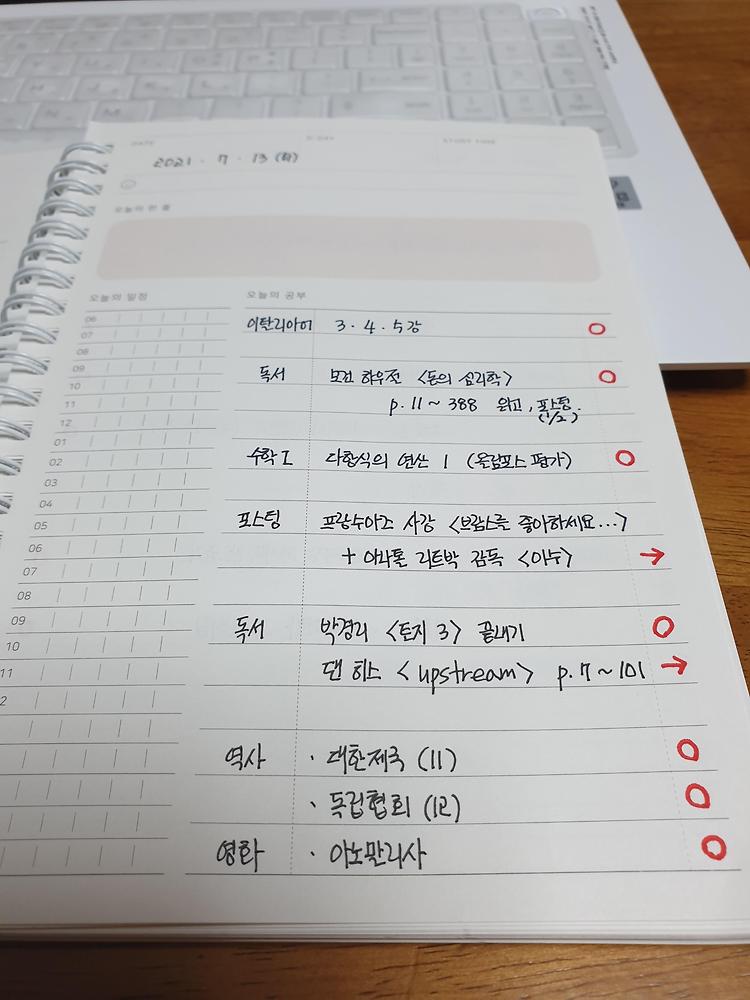 DATE D-DAY STUDY TIME
2021 . 7 . 13 (화)
오늘의 한 줄
오늘의 일정 오늘의 공부
06
07
08
09
10
11
12
01
02
03
04
05
06
07
08
09
10
11
2
이탈리아어 3 . 4 . 5강
독서 모건 하우절 <돈의 심리학>
p.11 ~ 388 읽고, 포스팅.
(1/2)
수학 I 다항식의 연산 1 (올림포스 평가)
포스팅 프랑수아즈 사강 <브람스를 좋아하세요...>
+ 아나톨 리트박 감독 <이수>
독서 박경리 <토지 3> 끝내기
댄 히스 <upstream> p.7 ~ 101
역사 · 대한제국 (11)
· 독립협회 (12)
영화 · 아노말리사